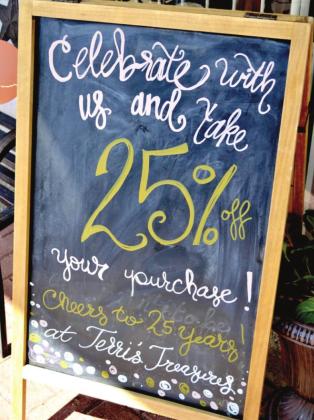 Celebrate with
us and take
25% off
your purchase!
Cheers to 25 years!
at Terri's Treasures